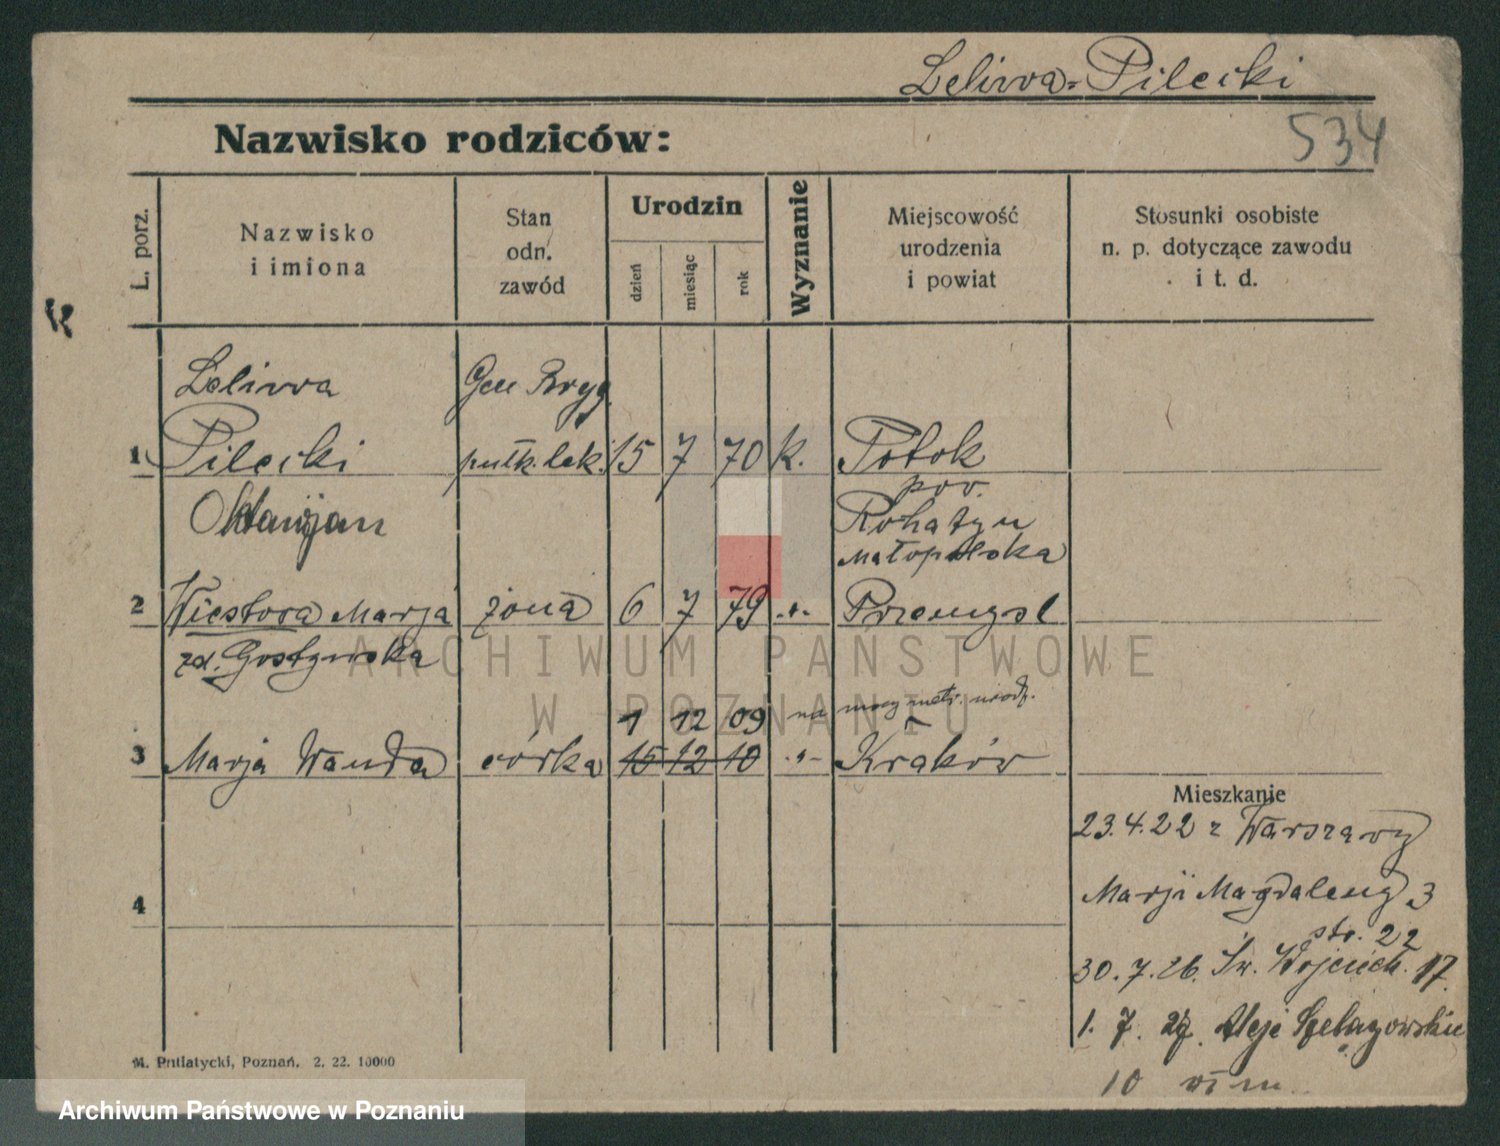 Leliwa-Pilecki
Nazwisko rodziców:
534
L. porz.
Nazwisko
i imiona
Stan
odn.
zawód
Urodzin
dzień
miesiąc
rok
Wyznanie
Miejscowość
urodzenia
i powiat
Stosunki osobiste
n. p. dotyczące zawodu
i t. d.
Leliwa Gen Bryg.
1 Pilecki pułk. lek. 15 7 70 k. Potok
pow.
Oktawjan Rohatyn
Małopolska
2 Wiestora Marja żona 6 7 79 -"- Przemyśl
zd. Gostyńska
1 12 09 na mocy metr. urodz.
3 Marja Wanda córka 15 12 10 -"- Kraków
Mieszkanie
23.4.22 z Warszawy
Marji Magdaleny 3
4
str. 22
30.7.26. Św. Wojciech. 17
1. 7. 27. Aleje Szelągowskie
10
M. Putiatycki, Poznań. 2. 22. 10000
ARCHIWUM PAŃSTWOWE
W POZNANIU
Archiwum Państwowe w Poznaniu